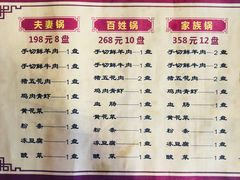 夫妻锅
198元8盘
手切鲜羊肉——1盘
手切鲜牛肉——1盘
猪五花肉——1盘
鸡肉青虾——1盘
黄花菜——1盘
粉条——1盘
冻豆腐——1盘
酸菜——1盘
百姓锅
268元10盘
手切鲜羊肉——2盘
手切鲜牛肉——1盘
猪五花肉——1盘
鸡肉青虾——1盘
血肠——1盘
黄花菜——1盘
粉条——1盘
冻豆腐——1盘
酸菜——1盘
家族锅
358元12盘
手切鲜羊肉——2盘
手切鲜牛肉——2盘
猪五花肉——2盘
鸡肉青虾——1盘
血肠——1盘
黄花菜——1盘
粉条——1盘
冻豆腐——1盘
酸菜——1盘